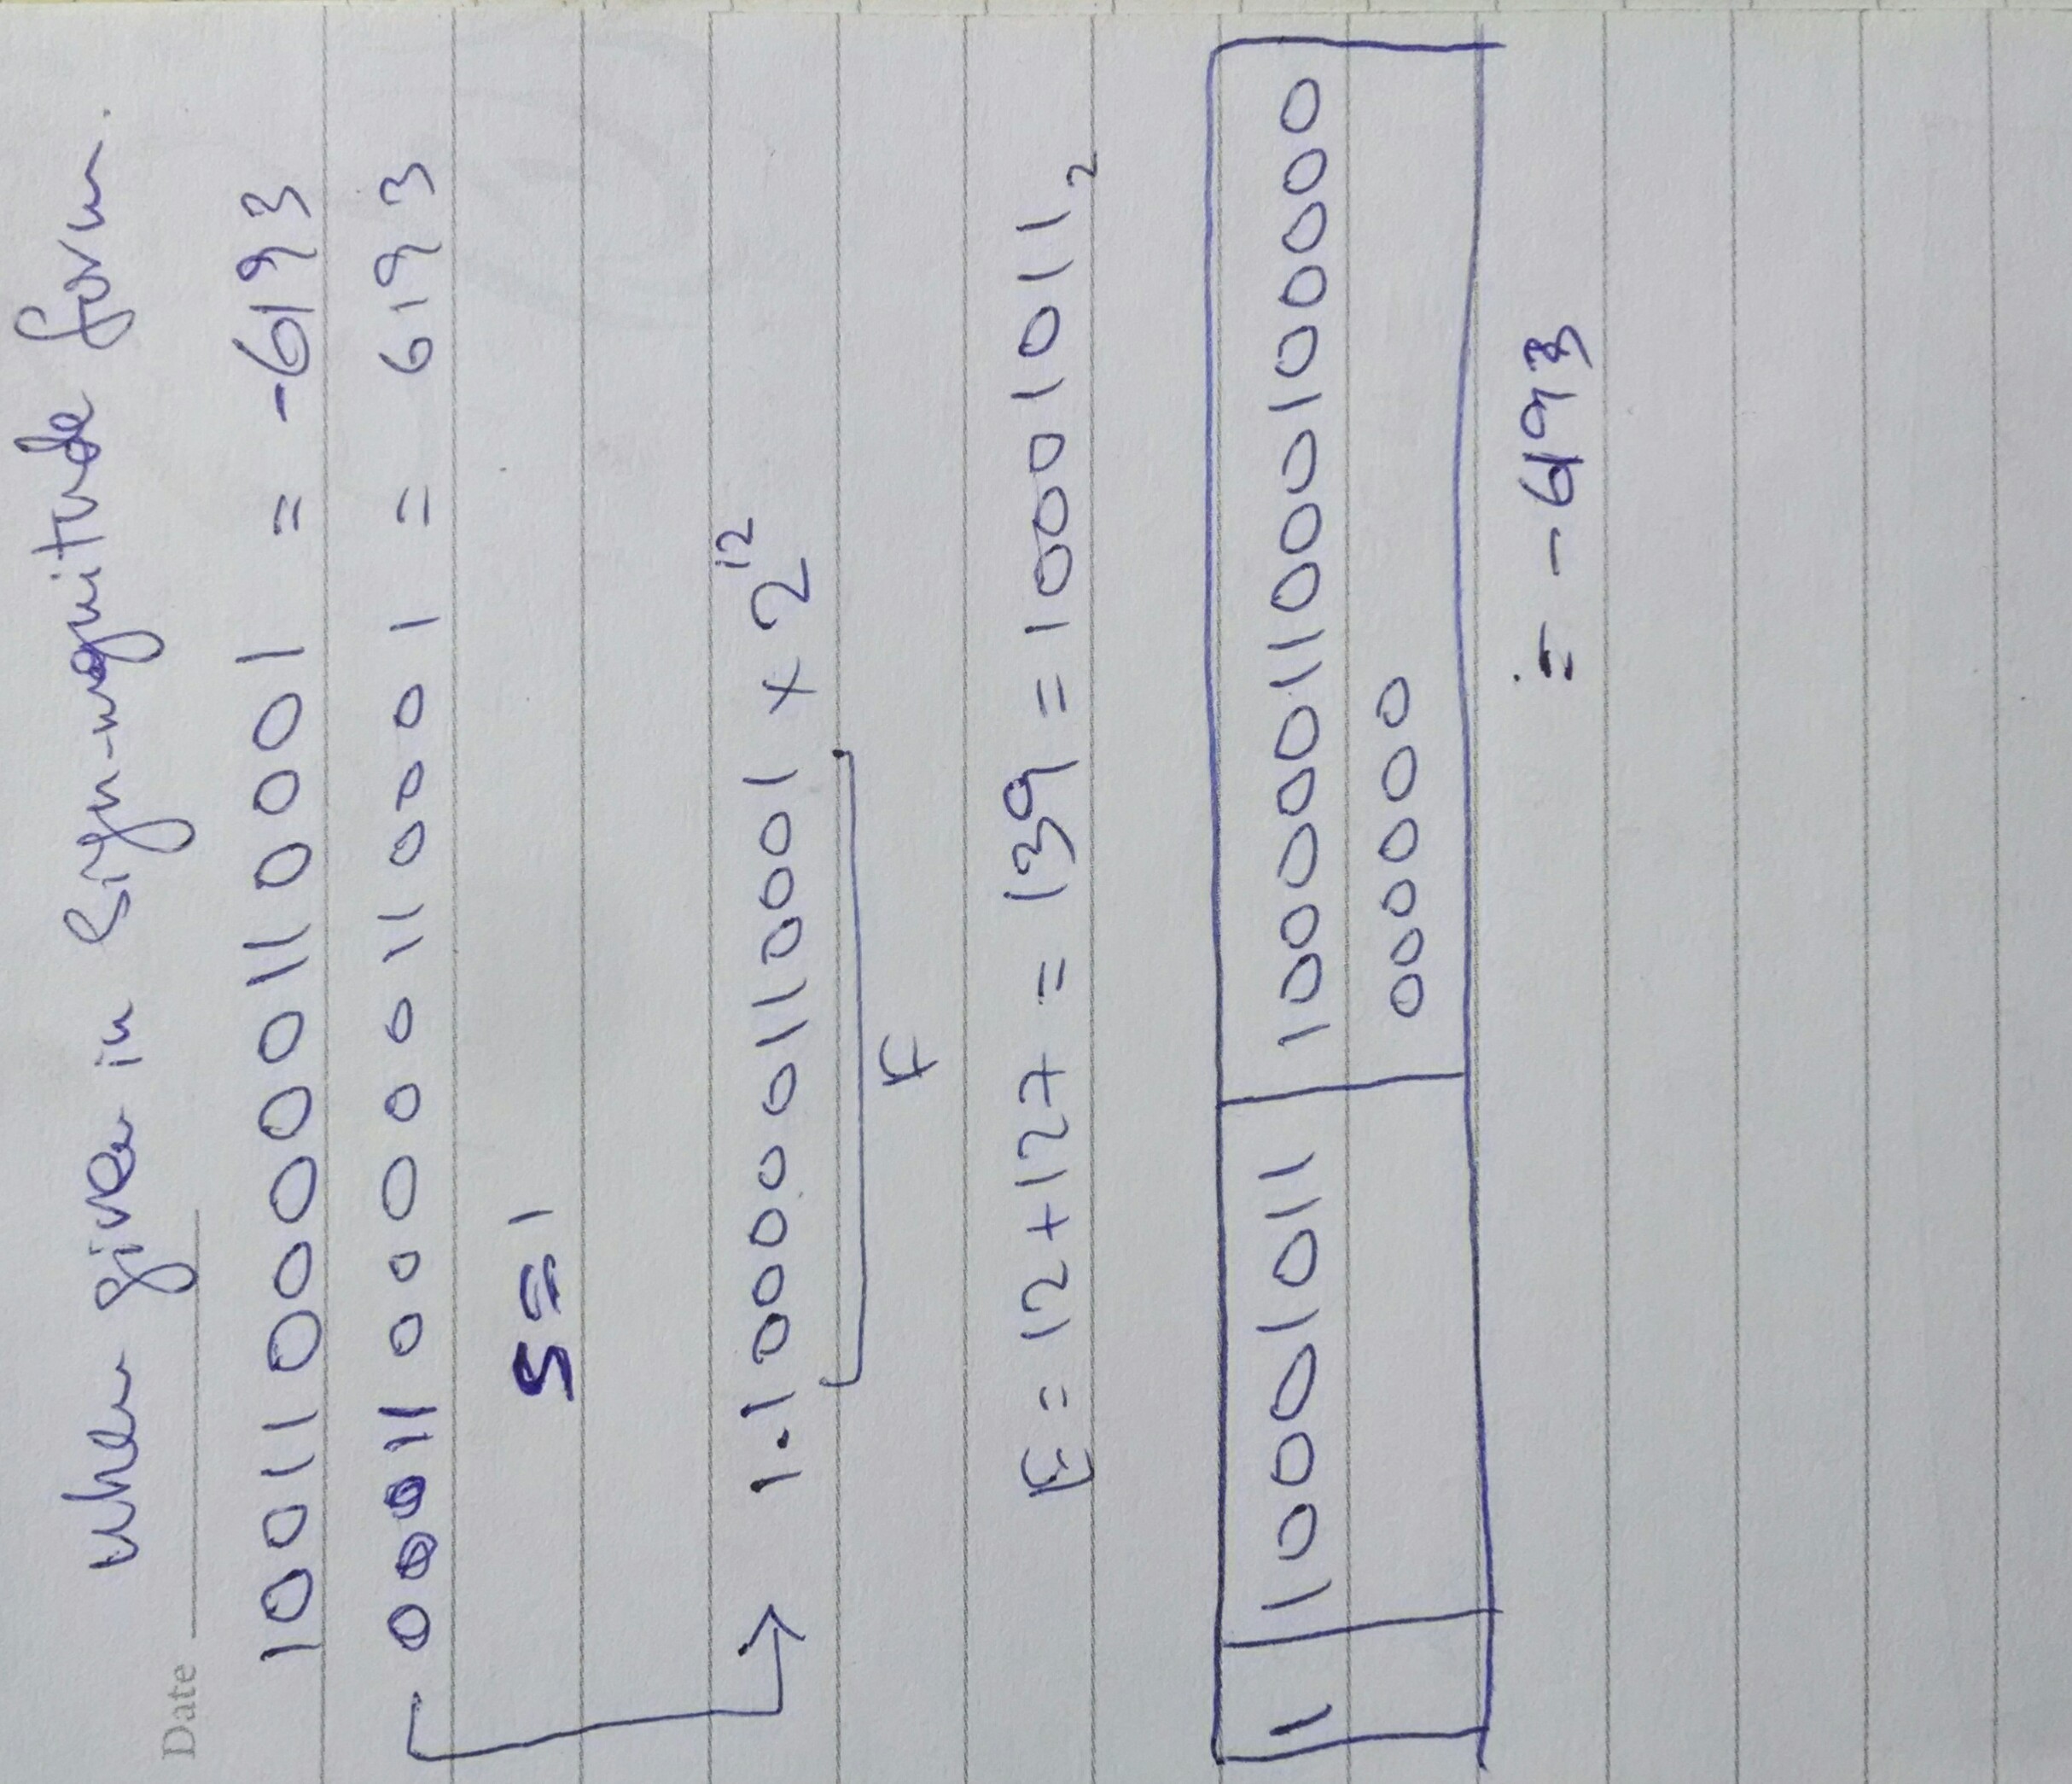 when given in Sign-mgnitude form.
Date
1001100000110001 = -6193
0001100000110001 = 6193
S = 1
1.100000110001 x 2¹²
F
E = 12+127 = 139 = 10001011₂
1 10001011 10000011000100000
000000
= -6193